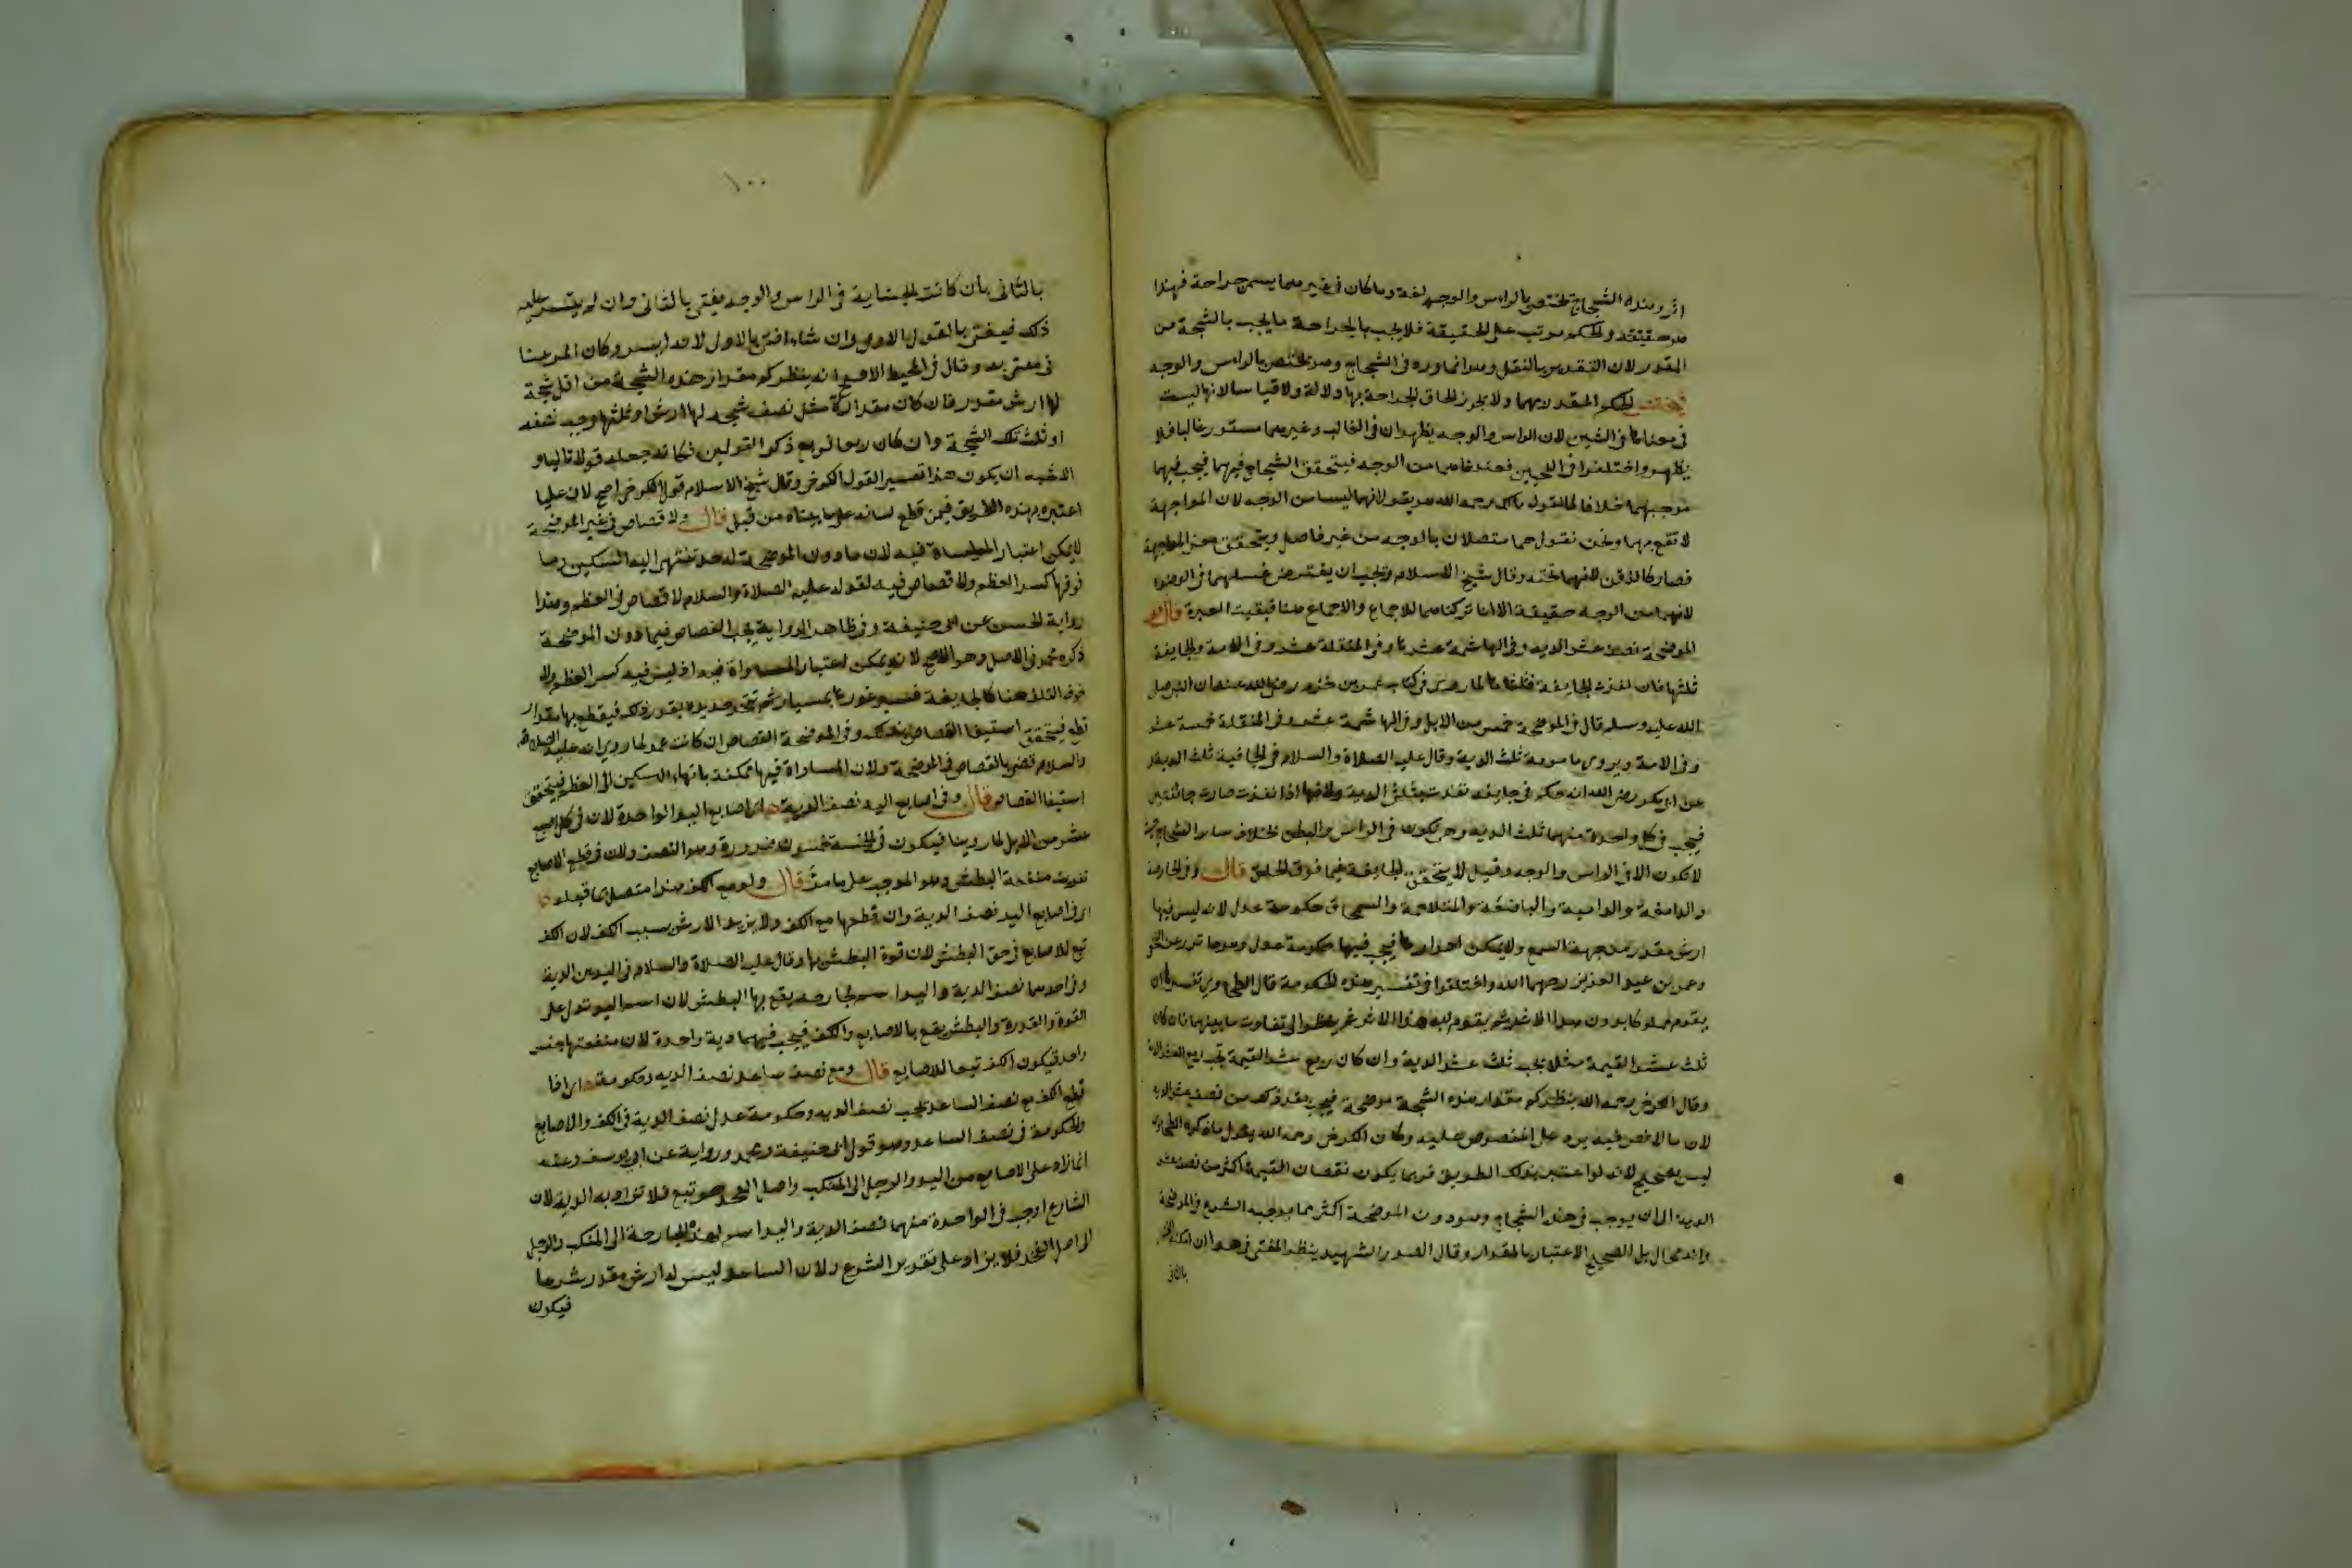 اثر وهذه الشجاج تختص بالراس والوجه لغة وما كان في غيرهما يسمى جراحة فهذا
هو حقيقته والحكم مرتب على الحقيقة فلا يجب بالجراحة ما يجب بالشجة من
المقدر لان التقدير بالنقل وهو انما ورد في الشجاج وهو يختص بالراس والوجه
فيختص الحكم المقدر بهما ولا يجوز الحاق الجراحة بها دلالة ولا قياسا لانها ليست
في معناها في الشين لان الراس والوجه يظهران في الغالب وغيرهما مستور غالبا فلا
يظهر واختلفوا في اللحيين فعندنا هما من الوجه فيتحقق الشجاج فيهما فيجب فيهما
موجبهما خلافا لما لقول مالك رحمه الله هو يقول انهما ليسا من الوجه لان المواجهة
لا تقع بهما ونحن نقول هما متصلان بالوجه من غير فاصل ويتحقق معنى المواجهة
فصار كالذقن لانهما تحته وقال شيخ الاسلام ويجب ان يفترض غسلهما في الوضوء
لانهما من الوجه حقيقة الا انا تركناهما للاجماع ولا اجماع هنا فبقيت العبرة قال وفي
الموضحة نصف عشر الدية وفي الهاشمة عشرها وفي المنقلة عشر و في الامة والجايفة
ثلثها فان نفذت الجايفة فثلثاها لما روي في كتاب عمرو بن حزم رضي الله عنه ان النبي صلى
الله عليه وسلم قال في الموضحة خمس من الابل وفي الهاشمة عشر وفي المنقلة خمسة عشر
وفي الامة ويروى مامومة ثلث الدية وقال عليه الصلاة والسلام في الجايفة ثلث الدية و
عن ابي بكر رضي الله انه حكم في جايفة نفذت بثلثي الدية ولانها اذا نفذت صارت جائفتين
فيجب في كل واحدة منهما ثلث الدية وهي تكون في الراس والبطن بخلاف سائر الشجاج حيث
لا تكون الا في الراس والوجه وقيل لا يتحقق الجايفة فيما فوق الحلق قال وفي الحارصة
والدامعة والدامية والباضعة والمتلاحمة والسمحاق حكومة عدل لانه ليس فيها
ارش مقدر من جهة السمع ولا يمكن اهدارها فيجب فيها حكومة عدل وهو ماثور عن النخعي
وعمر بن عبد العزيز رحمهما الله واختلفوا في تفسير هذه الحكومة قال الطحاوي تفسيرها ان
يقوم مملوكا بدون هذا الاثر ثم يقوم وبه هذا الاثر ثم ينظر الى تفاوت ما بينهما فان كان
ثلث عشر القيمة مثلا يجب ثلث عشر الدية وان كان ربع عشر القيمة يجب ربع عشر الدية
وقال الكرخي رحمه الله ينظر كم مقدار هذه الشجة من الموضحة فيجب بقدر ذلك من نصف عشر الدية
لان ما لا نص فيه يرد على المنصوص عليه وكان الكرخي رحمه الله يقول ما ذكره الطحاوي
ليس بصحيح لانه لو اعتبر بذلك الطريق فربما يكون نقصان القيمة اكثر من نصف عشر
الدية الى ان يوجب في هذه الشجاج وهو دون الموضحة اكثر مما يوجبه الشرع في الموضحة
وانه محال بل الصحيح الاعتبار بالمقدار وقال الصدر الشهيد ينظر المفتي في هذا ان امكنه
بالثاني
١٠٠
بالثاني بان كانت الجناية في الراس والوجه يفتي بالثاني وان لم يتيسر عليه
ذلك فيفتي بالقول الاول وان شاء افتى بالاول لانه ايسر وكان المرغينا
ني يفتي به وقال في المحيط الاصح انه ينظر كم مقدار هذه الشجة من اقل شجة
لها ارش مقدر فان كان مقداره مثل نصف شجة لها ارش او ثلثها وجب نصف
او ثلث تلك الشجة وان كان ربعا فربع ذكر القولين فكانه جعله قولا ثالثا و
الاشبه ان يكون هذا تفسير القول الكرخي وقال شيخ الاسلام قول الكرخي اصح لان عليا
اعتبره بهذه الطريق فيمن قطع لسانه على ما بيناه من قبل قال ولا قصاص في غير الموضحة
لا يمكن اعتبار المساواة فيه لان ما دون الموضحة له حد تنتهي اليه السكين وما
فوقها كسر العظم ولا قصاص فيه لقوله عليه الصلاة والسلام لا قصاص في العظم وهذا
رواية الحسن عن ابي حنيفة وفي ظاهر الرواية يجب القصاص فيما دون الموضحة
ذكره محمد في الاصل وهو الاصح لانه يمكن اعتبار المساواة فيه اذ ليس فيه كسر العظم ولا
خوف التلف هنا كالجايفة فيسبر غورها بمسبار ثم تتخذ حديدة بقدر ذلك فيقطع بها مقدار
قطع فيتحقق استيفا القصاص بذلك وفي الموضحة القصاص ان كانت عمد لما روي انه عليه الصلاة
والسلام قضى بالقصاص في الموضحة ولان المساواة فيها ممكنة بانتهاء السكين الى العظم فيتحقق
استيفا القصاص قال وفي اصابع اليد نصف الدية اي اصابع اليد الواحدة لان في كل اصبع
عشر من الابل لما روينا فيكون في الخمسة خمسون ضرورة وهو النصف ولان في قطع الاصابع
تفويت منفعة البطش وهو الموجب على ما مر قال ولو مع الكف هذا متصل بما قبله
اي في اصابع اليد نصف الدية وان قطعها مع الكف ولا يزيد الارش بسبب الكف لان الكف
تبع للاصابع في حق البطش لان قوة البطش بها وقال عليه الصلاة والسلام في اليدين الدية
وفي احدهما نصف الدية واليد اسم لجارحة يقع بها البطش لان اسم اليد تدل على
القوة والقدرة والبطش يقع بالاصابع والكف فيجب فيهما دية واحدة لان منفعتها جنس
واحد فيكون الكف تبعا للاصابع قال ومع نصف ساعد نصف الدية وحكومة اي اذا
قطع الكف مع نصف الساعد يجب نصف الدية وحكومة عدل نصف الدية في الكف والاصابع
والحكومة في نصف الساعد وهو قول ابي حنيفة ومحمد ورواية عن ابي يوسف وعنه
ان ما زاد على الاصابع من اليد والرجل الى المنكب واصل الفخذ هو تبع فلا تزاد به الدية لان
الشارع اوجب في الواحدة منهما نصف الدية واليد اسم لهذه الجارحة الى المنكب والرجل
الى اصل الفخذ فلا يزاد على تقدير الشرع ولان الساعد ليس له ارش مقدر شرعا
فيكون